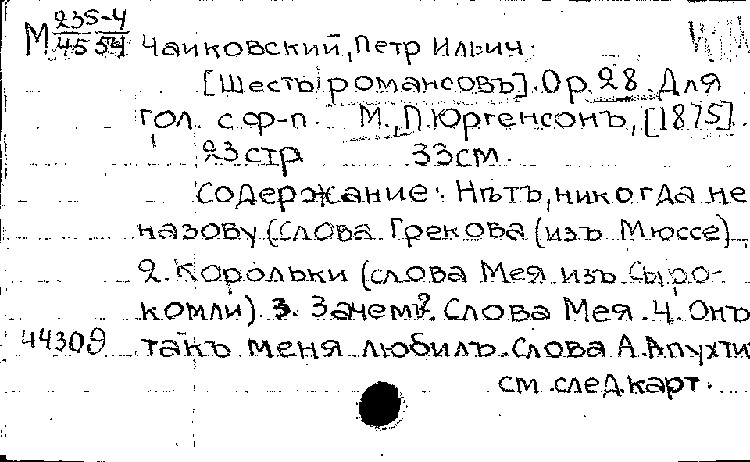 М 235-4
45 54 Чайковский, Петр Ильич.
[Шесть романсовъ]. Ор. 28. Для
гол. с ф-п. М., П. Юргенсонъ, [1875].
23 стр 33 см.
Содержание: Нѣтъ, никогда не
назову (Слова Грекова (изъ Мюссе)
2. Корольки (слова Мея изъ Сыро-
комли). 3. Зачем? Слова Мея. 4. Онъ
44309 такъ меня любилъ. Слова А. Апухти
см. след. карт.